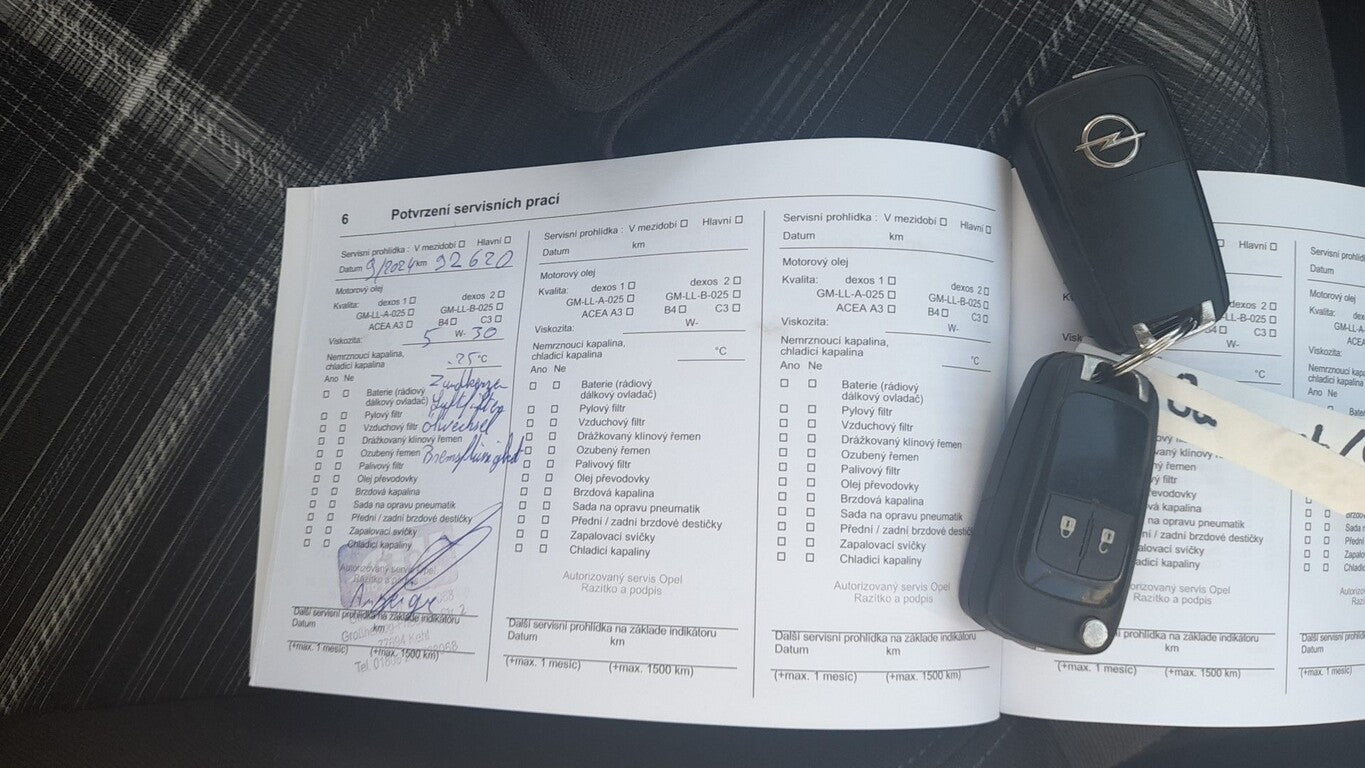 6 Potvrzení servisních prací
Servisní prohlídka : V mezidobí □ Hlavní □
Datum 9/2024 km 92620
Motorový olej
Kvalita: dexos 1 □ dexos 2 □
GM-LL-A-025 □ GM-LL-B-025 □
ACEA A3 □ B4 □ C3 □
Viskozita: 5 W- 30
Nemrznoucí kapalina,
chladicí kapalina -25 °C
Ano Ne
□ □ Baterie (rádiový
dálkový ovladač)
Zündkerzen
□ □ Pylový filtr
□ □ Vzduchový filtr Ölwechsel
□ □ Drážkovaný klínový řemen
□ □ Ozubený řemen
□ □ Palivový filtr
□ □ Olej převodovky
□ □ Brzdová kapalina
□ □ Sada na opravu pneumatik
□ □ Přední / zadní brzdové destičky
□ □ Zapalovací svíčky
□ □ Chladicí kapaliny
Autorizovaný servis Opel
Razítko a podpis
Další servisní prohlídka na základě indikátoru
Datum km
77694 Kehl
(+max. 1 měsíc) (+max. 1500 km)
Tel.
Servisní prohlídka : V mezidobí □ Hlavní □
Datum km
Motorový olej
Kvalita: dexos 1 □ dexos 2 □
GM-LL-A-025 □ GM-LL-B-025 □
ACEA A3 □ B4 □ C3 □
Viskozita: W-
Nemrznoucí kapalina,
chladicí kapalina °C
Ano Ne
□ □ Baterie (rádiový
dálkový ovladač)
□ □ Pylový filtr
□ □ Vzduchový filtr
□ □ Drážkovaný klínový řemen
□ □ Ozubený řemen
□ □ Palivový filtr
□ □ Olej převodovky
□ □ Brzdová kapalina
□ □ Sada na opravu pneumatik
□ □ Přední / zadní brzdové destičky
□ □ Zapalovací svíčky
□ □ Chladicí kapaliny
Autorizovaný servis Opel
Razítko a podpis
Další servisní prohlídka na základě indikátoru
Datum km
(+max. 1 měsíc) (+max. 1500 km)
Servisní prohlídka : V mezidobí □ Hlavní □
Datum km
Motorový olej
Kvalita: dexos 1 □ dexos 2 □
GM-LL-A-025 □ GM-LL-B-025 □
ACEA A3 □ B4 □ C3 □
Viskozita: W-
Nemrznoucí kapalina,
chladicí kapalina °C
Ano Ne
□ □ Baterie (rádiový
dálkový ovladač)
□ □ Pylový filtr
□ □ Vzduchový filtr
□ □ Drážkovaný klínový řemen
□ □ Ozubený řemen
□ □ Palivový filtr
□ □ Olej převodovky
□ □ Brzdová kapalina
□ □ Sada na opravu pneumatik
□ □ Přední / zadní brzdové
□ □ Zapalovací svíčky
□ □ Chladicí kapaliny
Autorizovaný servis Opel
Razítko a podpis
Další servisní prohlídka na základě indikátoru
Datum km
(+max. 1 měsíc) (+max. 1500 km)
Hlavní □
2 □
C3 □
W-
°C
servis Opel
a podpis
prohlídka na základě indikátoru
km
(+max. 1 měsíc) (+max. 1500 km)
Datum
Motorový olej
Kvalita:
Ano Ne
Datum
(+max. 1 měsíc)